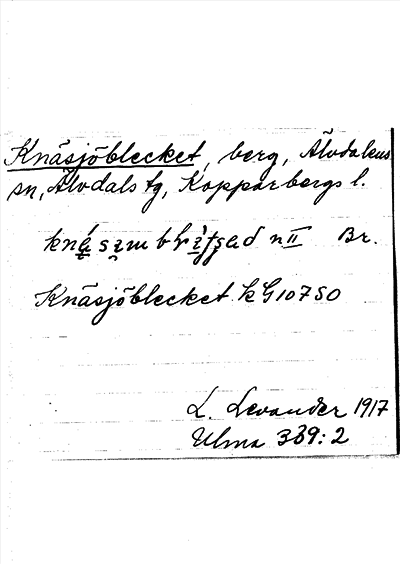 Knäsjöblecket, berg, Älvdalens
sn, Älvdals tg, Kopparbergs l.
n II Br.
Knäsjöblecket kG 10750
L. Levander 1917
Ulma 339:2